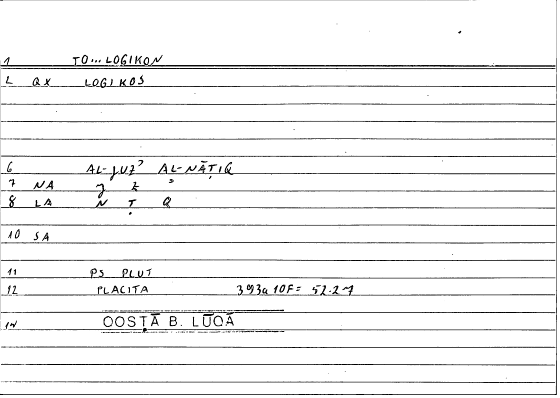 1 TO...LOGIKON
L QX LOGIKOS
6 AL-ǧUZʾ AL-NĀṬIQ
7 NA ǧ Z ʾ
8 LA N Ṭ Q
10 SA
11 PS PLUT
12 PLACITA 393a 10F = 52.27
14 QOSṬĀ B. LŪQĀ